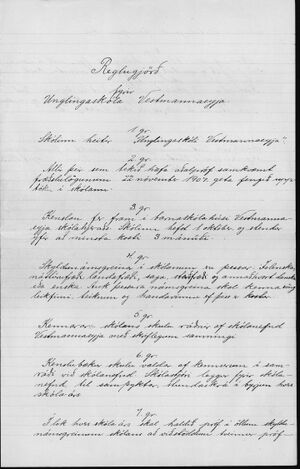 Reglugjörð
fyrir
Unglingaskóla Vestmannaeyja
1 gr.
Skólinn heitir "Unglingaskóli Vestmannaeyja".
2. gr.
Allir þeir sem tekið hafa aðalpróf samkvæmt
fræðslulögunum 22 nóvember 1907 geta fengið upp-
töku í skólann
3. gr.
Kenslan fer fram í barnaskólahúsi Vestmanna-
eyja skólahjeraðs. Skólinn hefst 1 október og stendur
yfir að minsta kosti 3 mánuði
4. gr.
Skyldunámsgreinar í skólanum eru þessar: Íslenska
náttúrufræði landafræði, saga, og annaðhvort danska
eða enska. Auk þessara námsgreina skal kenna söng
leikfimi teikning og handavinnu ef þess er kostur
5. gr.
Kennarar skólans skulu ráðnir af skólanefnd
Vestmannaeyja með skriflegum samningi
6. gr.
Kenslubækur skulu valdar af kennurum í sam-
ráði við skólanefnd. Skólastjóri leggur fyrir skóla-
nefnd til samþyktar stundaskrá í byrjun hvers
skólaárs
7. gr.
Í lok hvers skólaárs skal haldið próf í öllum skyldu-
námsgreinum skólans að viðstöddum tveimur próf-